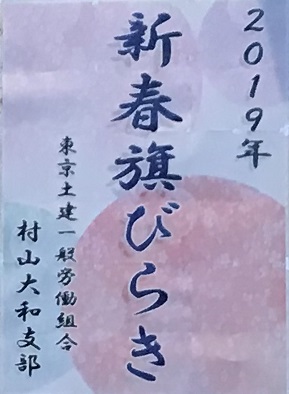 2019年
新春旗びらき
東京土建一般労働組合
村山大和支部